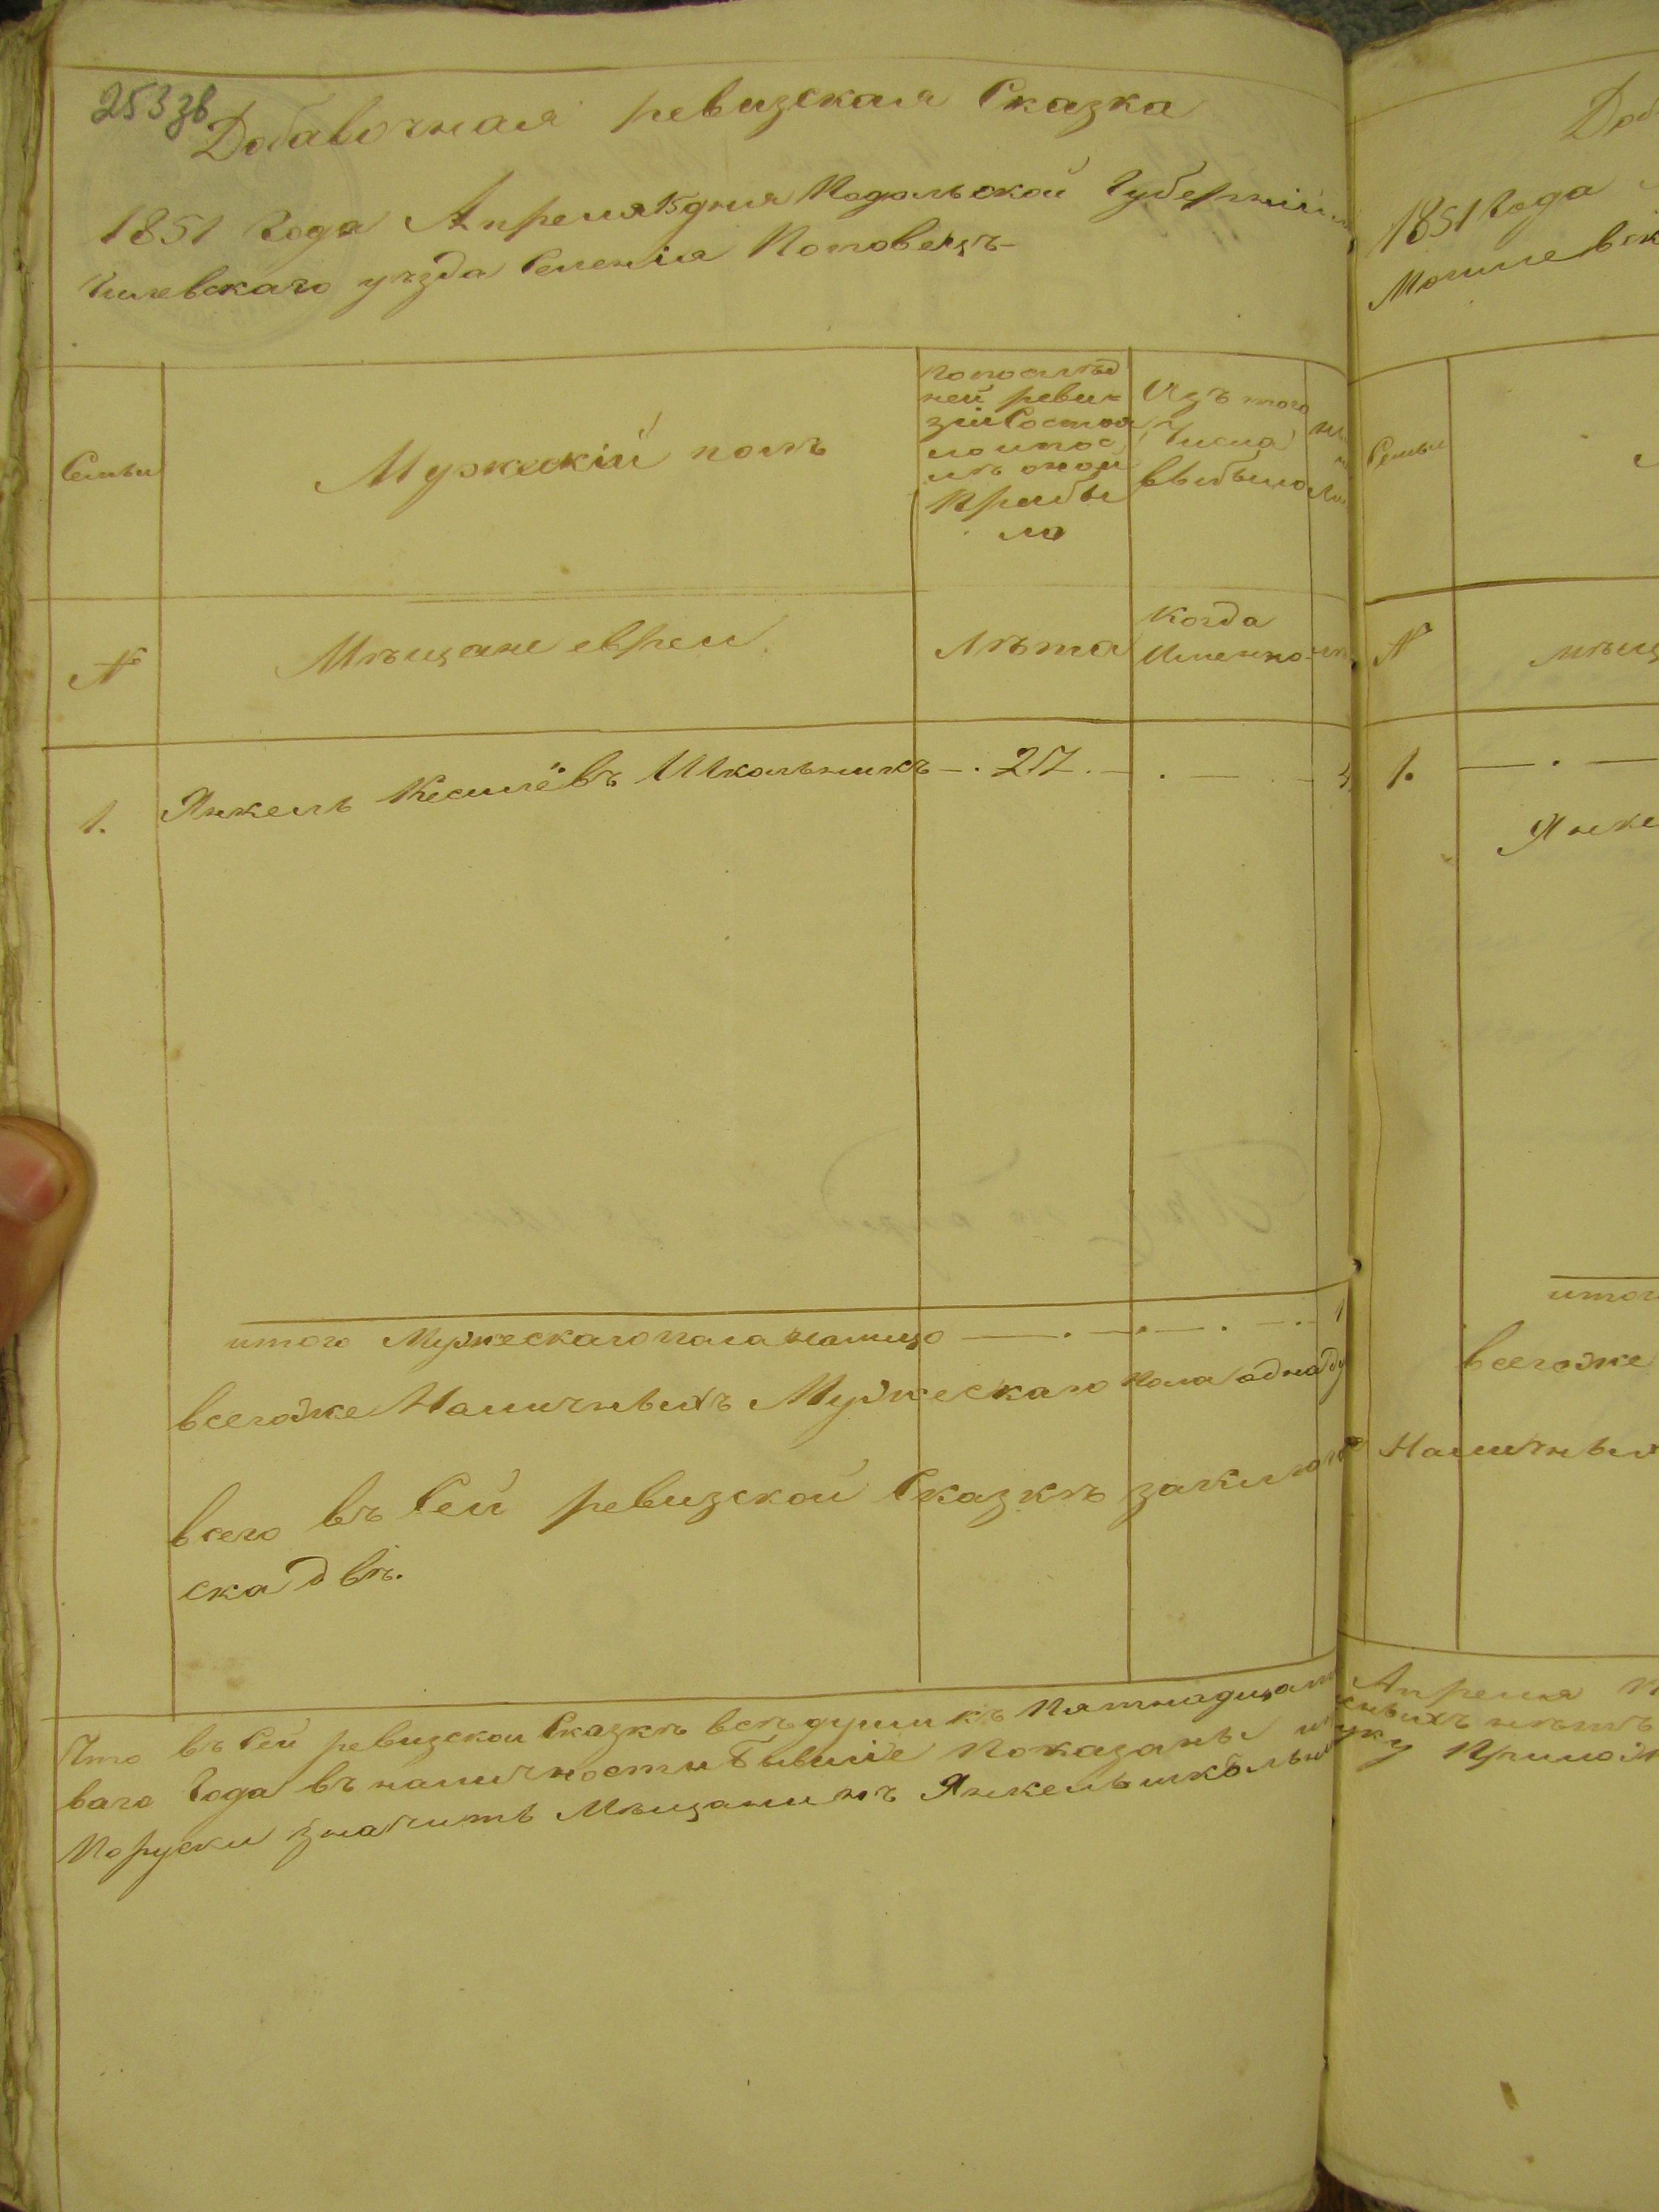 253 зв
Добавочная ревизская Сказка
1851 Года Апреля 15 дня Подольской Губерніи
гилевскаго уѣзда Селенія Потовецъ
Семьи
Мужескій полъ
По послѣд
ней реви-
зіи Состоя
ло и пос
лѣ оной
Прибы
ло
Изъ того
Числа
выбыло
№
Мѣщане евреи
Лѣта
Когда
Именно
1. Янкель Кесилёвъ Школьникъ — . 27 . — . —
итого Мужескаго пола налицо — . — . — . — 1
всегоже Наличныхъ Мужескаго пола одна ду
всего въ Сей ревизской Сказкѣ заключ
ска двѣ.
Что въ Сей ревизской Сказкѣ всѣ души къ Пятнадцат
ваго Года въ наличности бывшіе показаны и
По руски значитъ Мѣщанинъ Янкель школьни
Доб
1851 Года
Могилевск
Семьи
№
мѣщ
1. — . —
Янке
итог
всегоже
Наличных
Апреля
нѣтъ
уку Прилож